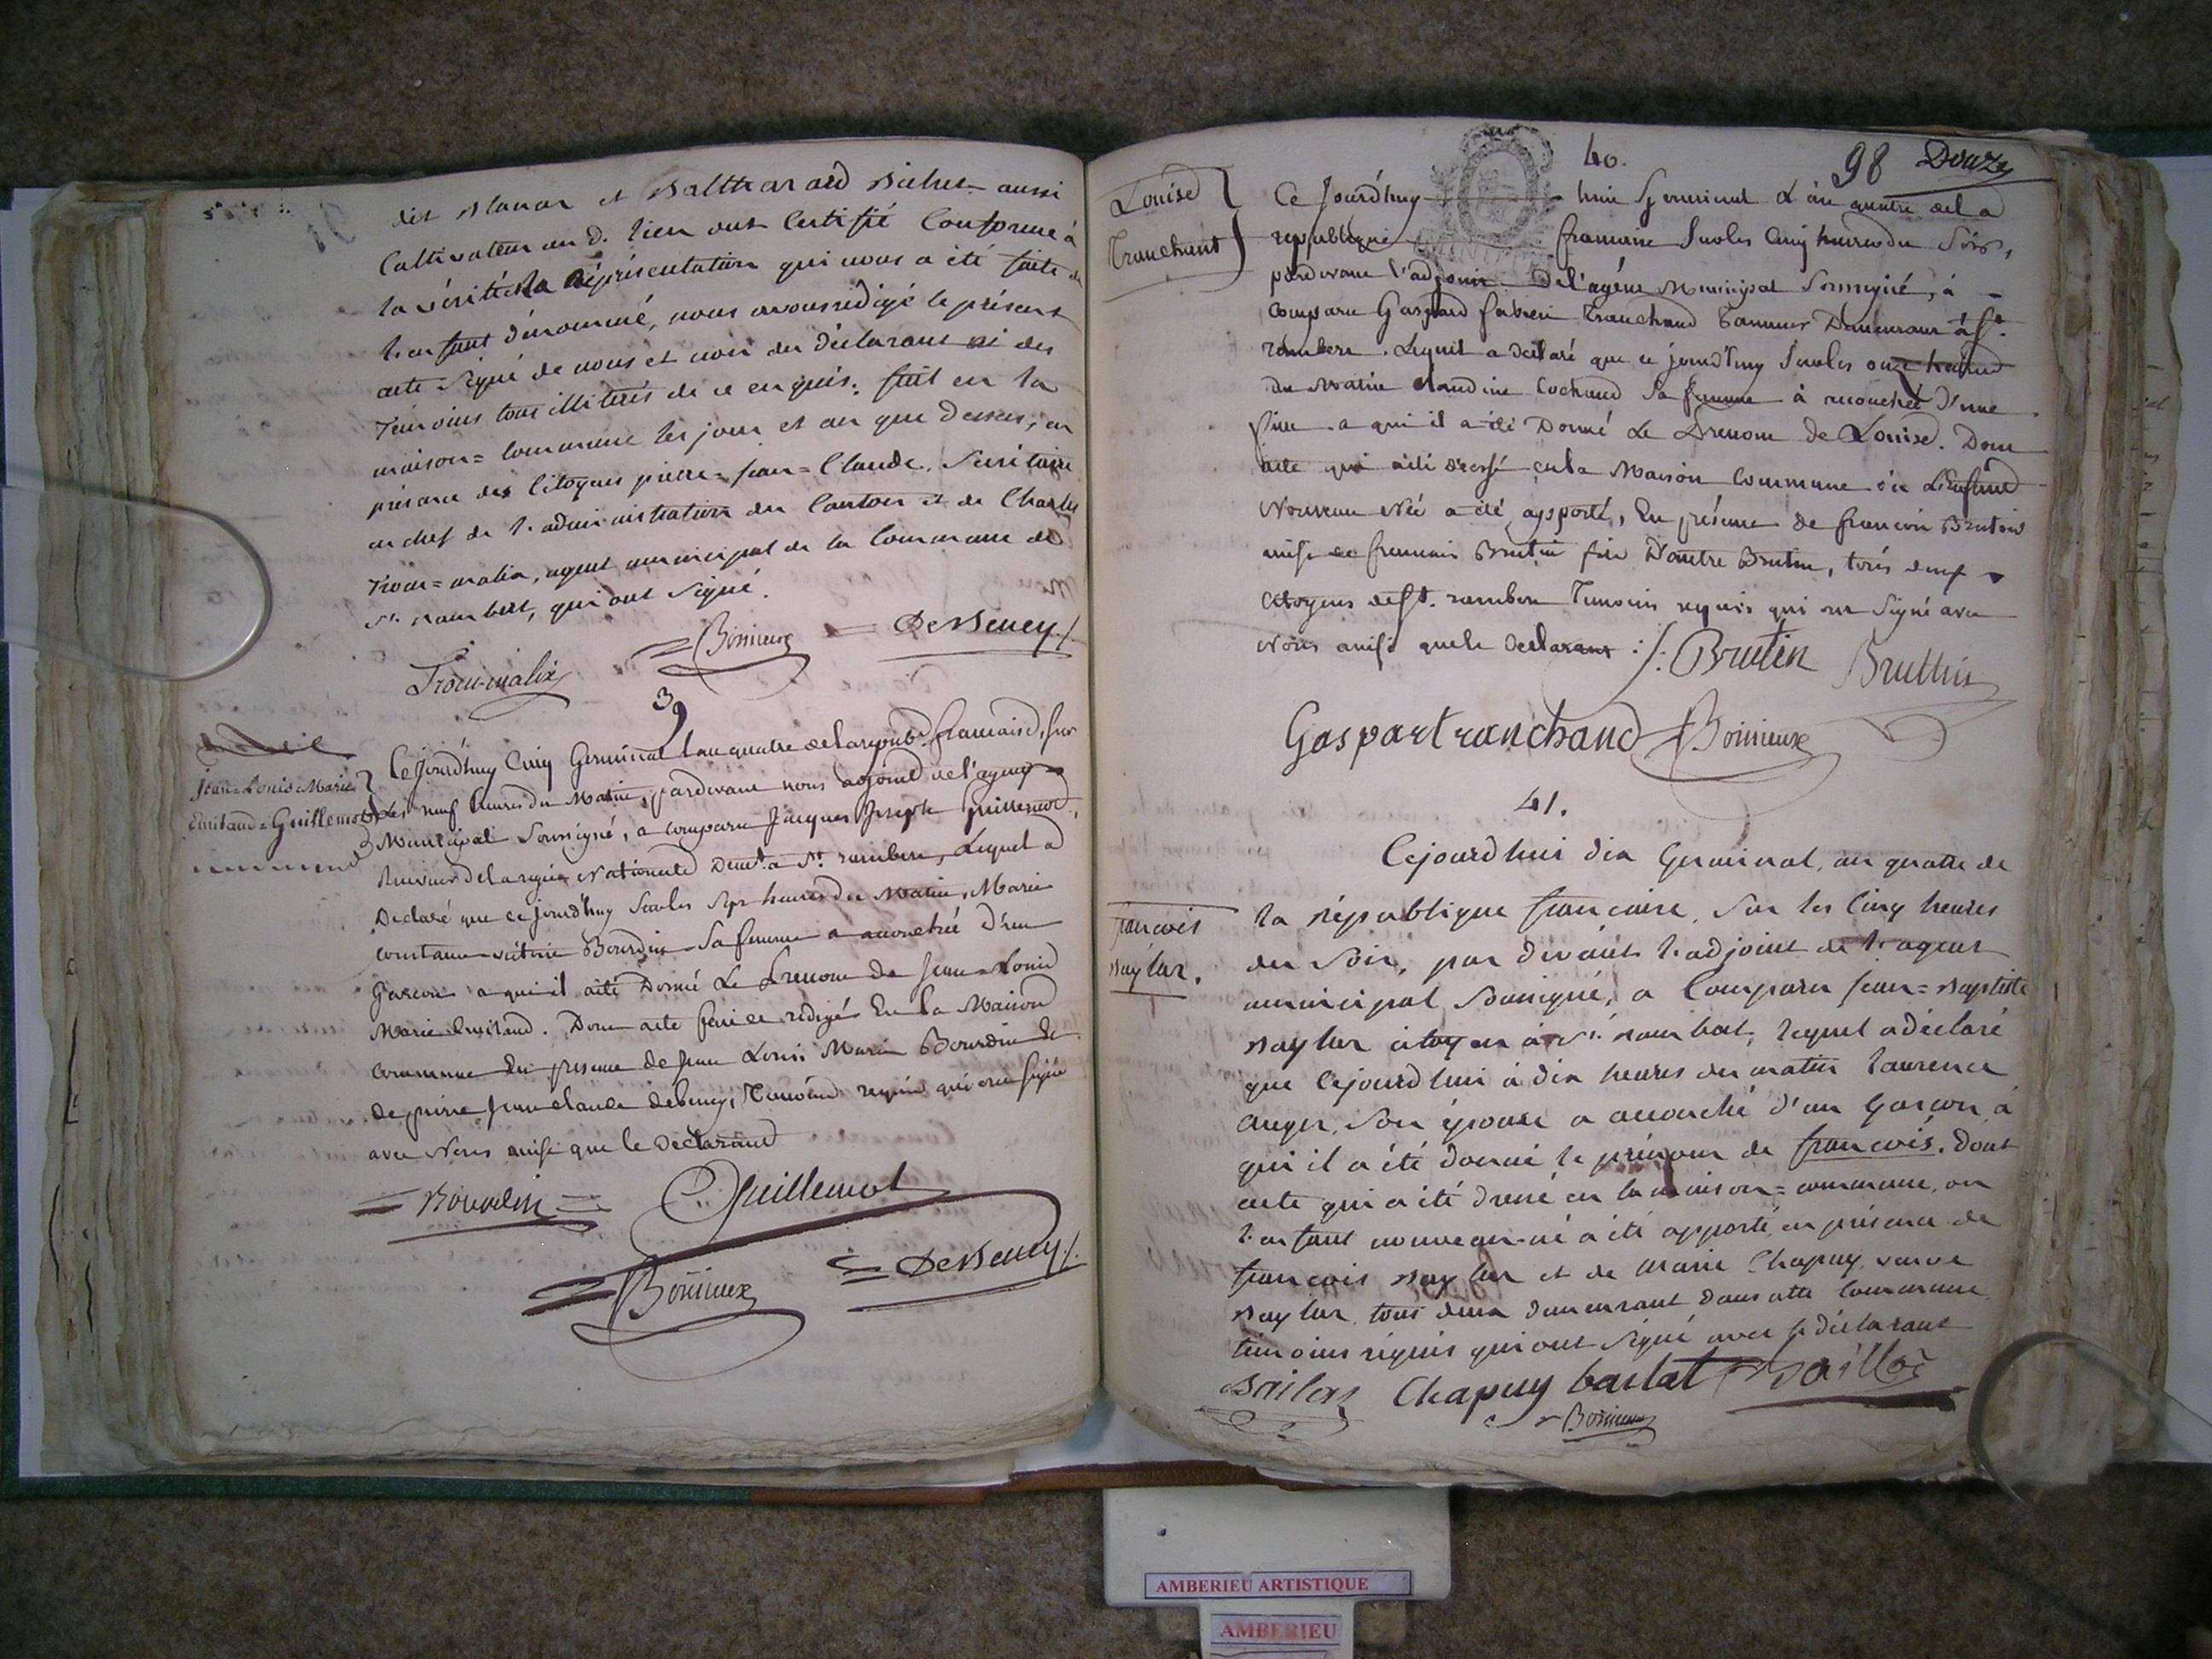 dit et aussi
Cultivateur au d. lieu ont Certifié Conforme à
la vérité la représentation qui nous a été faite de
l'enfant dénommé, nous avons rédigé le présent
acte signé de nous et non du déclarant ni des
témoins tous illitérés de ce enquis. fait en la
maison = commune les jour et an que dessus, en
présence des Citoyens pierre = jean = Claude, Secrétaire
en chef de l'administration du Canton et de Charles
Trocu = malix, agent municipal de la Commune de
St. rambert, qui ont signé.
= Bonieux = DeBeney ./.
Trocu-malix
39
Jean=Louis=Marie
Emiland=Guillemot
Ce Jourd'huy Cinq Germinal L'an quatre de la repub.e francaise, sur
Les neuf heures du Matin, pardevant nous adjoint de l'agent
Municipal Soussigné, a comparu Jacques Joseph Guillemot,
Receveur de la regie Nationale Demt. a St. rambert, Lequel a
Declaré que ce jourd'huy sur les sept heures du Matin, Marie
constance victoire Bourdin Sa femme a accouchée d'un
Garcon a qui il a été Donné Le Prenom de Jean = Louis
Marie Emiland. Dont acte fait et redigé En la Maison
commune En presence de Jean Louis Marie Bourdin et
de pierre jean claude debeney, Temoins requis qui ont signé
avec Nous ainsi que le Declarant
= Bourdin = Guillemot
= Bonieux = DeBeney ./.
40.
98 Douze
Louise
Tranchant
Ce Jourd'huy huit Germinal L'an quatre de la
republique francaise Sur les Cinq heures du Soir,
pardevant l'adjoint De l'agent Municipal Soussigné, à
comparu Gaspard Tranchand Tanneur Demeurant à St.
rambert. Lequel a declaré que ce jourd'huy Sur les onze heures
du Matin Claudine Cochand Sa femme à accouchée d'une
fille a qui il a été Donné Le Prenom de Louise. Dont
acte qui a été dressé en la Maison Commune où L'Enfant
Nouveau Née a été apporté, En présence de francois Brutin
ainsi de francois Brutin fils D'autre Brutin, tous deux
citoyens de St. rambert Temoins requis qui ont Signé avec
Nous ainsi que le declarant ./. Brutin Bruttin
Gaspartranchand Bonieux
41.
francois
Baylar.
Cejourdhui dix Germinal, an quatre de
la république francaise, sur les Cinq heures
du soir, par devant l'adjoint de l'agent
municipal soussigné, a Comparu jean = Baptiste
Baylar citoyen à St. rambert, lequel a déclaré
que Cejourdhui à dix heures du matin laurence
auger, son épouse a accouché d'un Garcon à
qui il a été donné le prénom de francois. Dont
acte qui a été dressé en la maison = commune, ou
l'enfant nouveau-né a été apporté, en présence de
francois Baylar et de marie Chapuy veuve
Baylar, tous deux demeurant dans cette Commune
témoins réquis qui ont signé avec le déclarant
Bailar Chapuy
Bonieux
AMBERIEU ARTISTIQUE
AMBERIEU